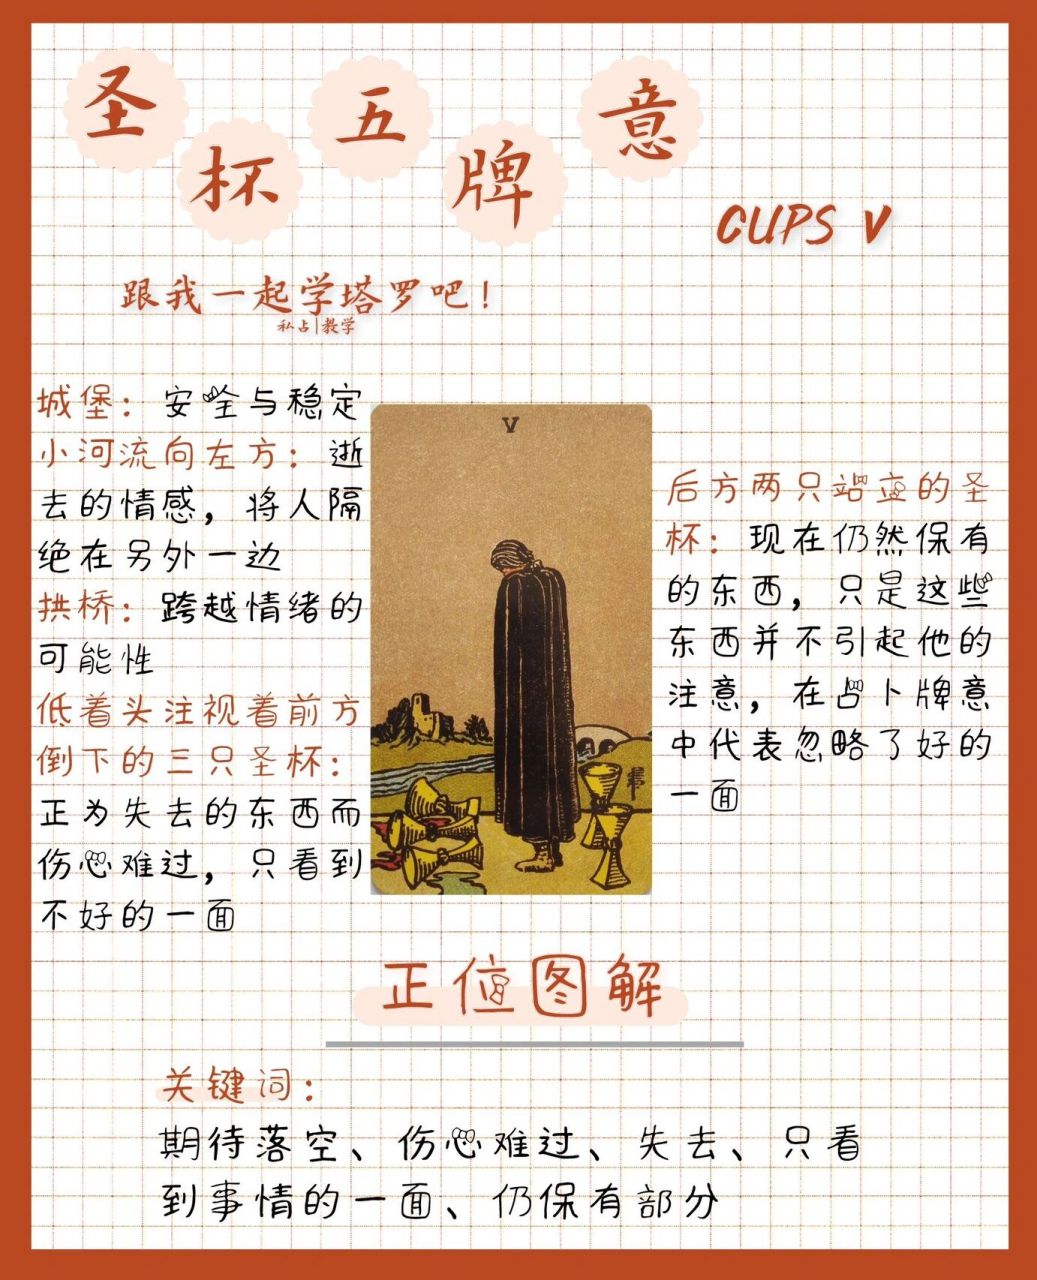 圣杯五牌意
CUPS V
跟我一起学塔罗吧！
私占|教学
城堡：安全与稳定
小河流向左方：逝
去的情感，将人隔
绝在另外一边
拱桥：跨越情绪的
可能性
低着头注视着前方
倒下的三只圣杯：
正为失去的东西而
伤心难过，只看到
不好的一面
V
后方两只站立的圣
杯：现在仍然保有
的东西，只是这些
东西并不引起他的
注意，在占卜牌意
中代表忽略了好的
一面
正位图解
关键词：
期待落空、伤心难过、失去、只看
到事情的一面、仍保有部分